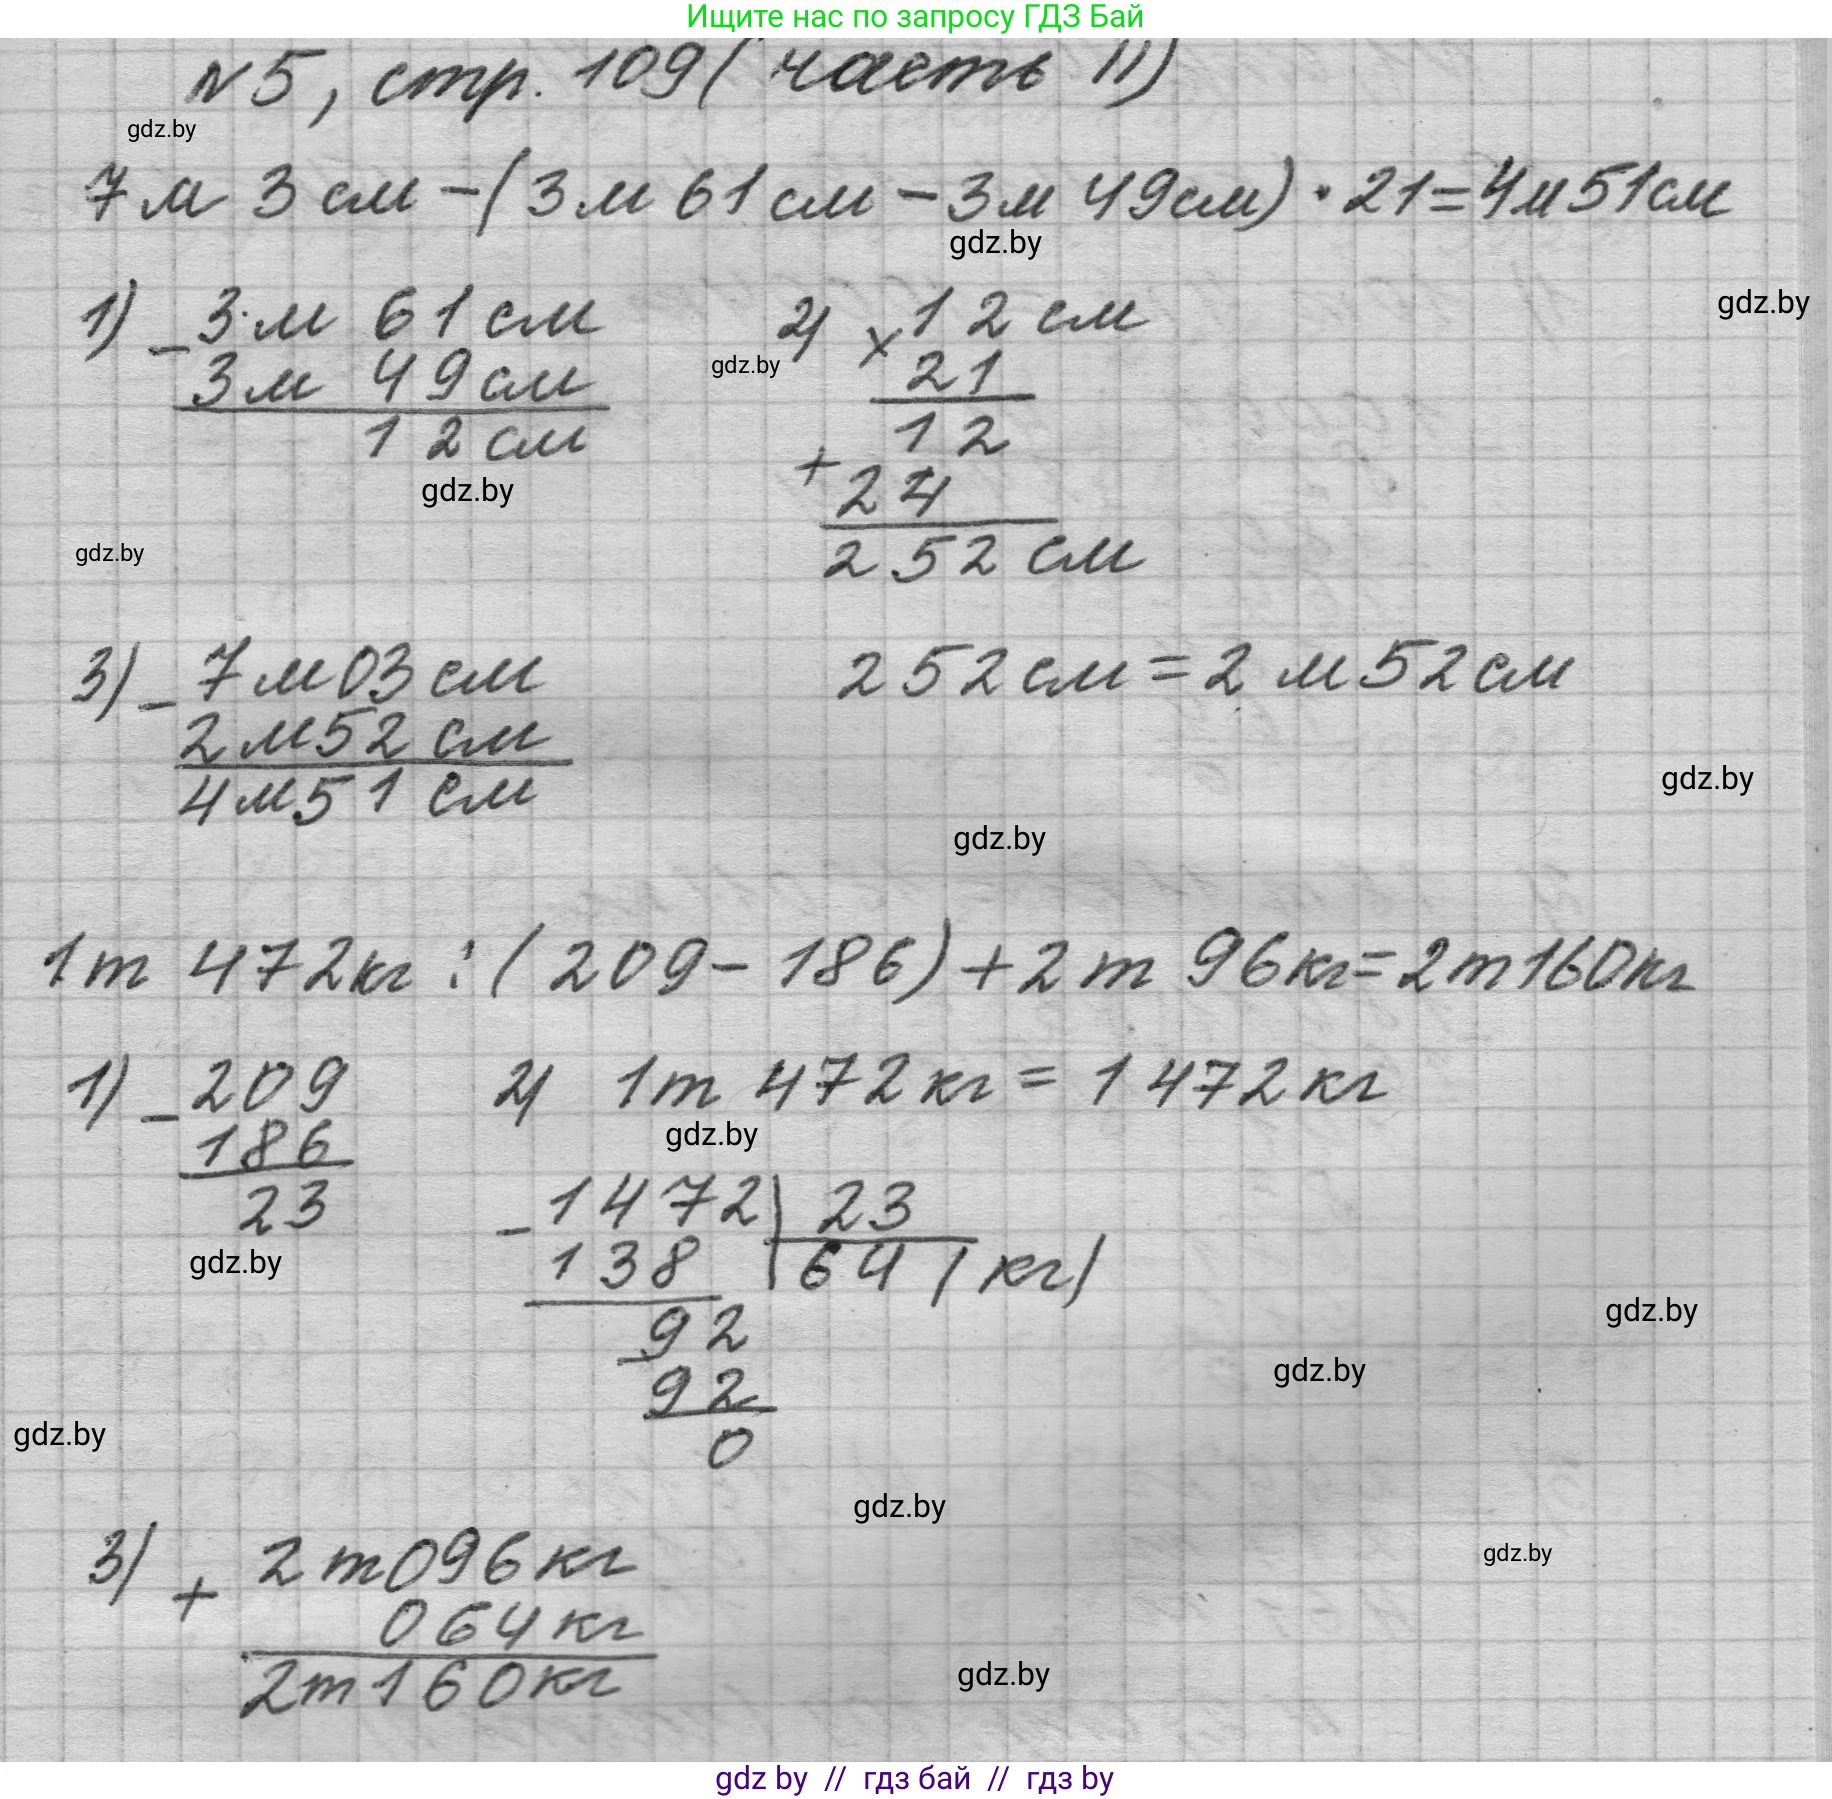 Ищите нас по запросу ГДЗ Бай
N5, стр. 109 (часть II)
gdz.by
7м 3см-(3м 61см-3м 49см)·21=4м51см
gdz.by
gdz.by
1) - 3м 61см
3м 49см
12см
gdz.by
gdz.by
2) × 12см
gdz.by
21
12
+ 24
252 см
3) - 7м03см
2м52см
4м51см
252см=2м52см
gdz.by
gdz.by
1т 472кг:(209-186)+2т 96кг=2т160кг
1) - 209
186
23
gdz.by
2) 1т 472кг=1472кг
gdz.by
- 1472 | 23
138 | 64 (кг)
- 92
92
0
gdz.by
gdz.by
gdz.by
gdz.by
gdz.by
3) + 2т096кг
064кг
2т160кг
gdz.by
gdz by // гдз бай // гдз by